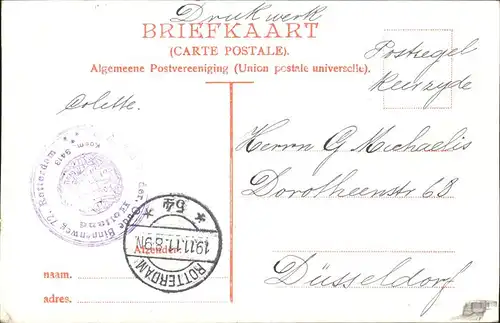 Drukwerk
BRIEFKAART
(CARTE POSTALE).
Algemeene Postvereeniging (Union postale universelle).
Postzegel
Keerzyde
Colette.
Herrn G Michaelis
Dorotheenstr 68
Düsseldorf
Oude Binnenweg 72, Rotterdam
Holland
54
19.11.11. 8-9N.
ROTTERDAM
Afzender:
naam.
adres.